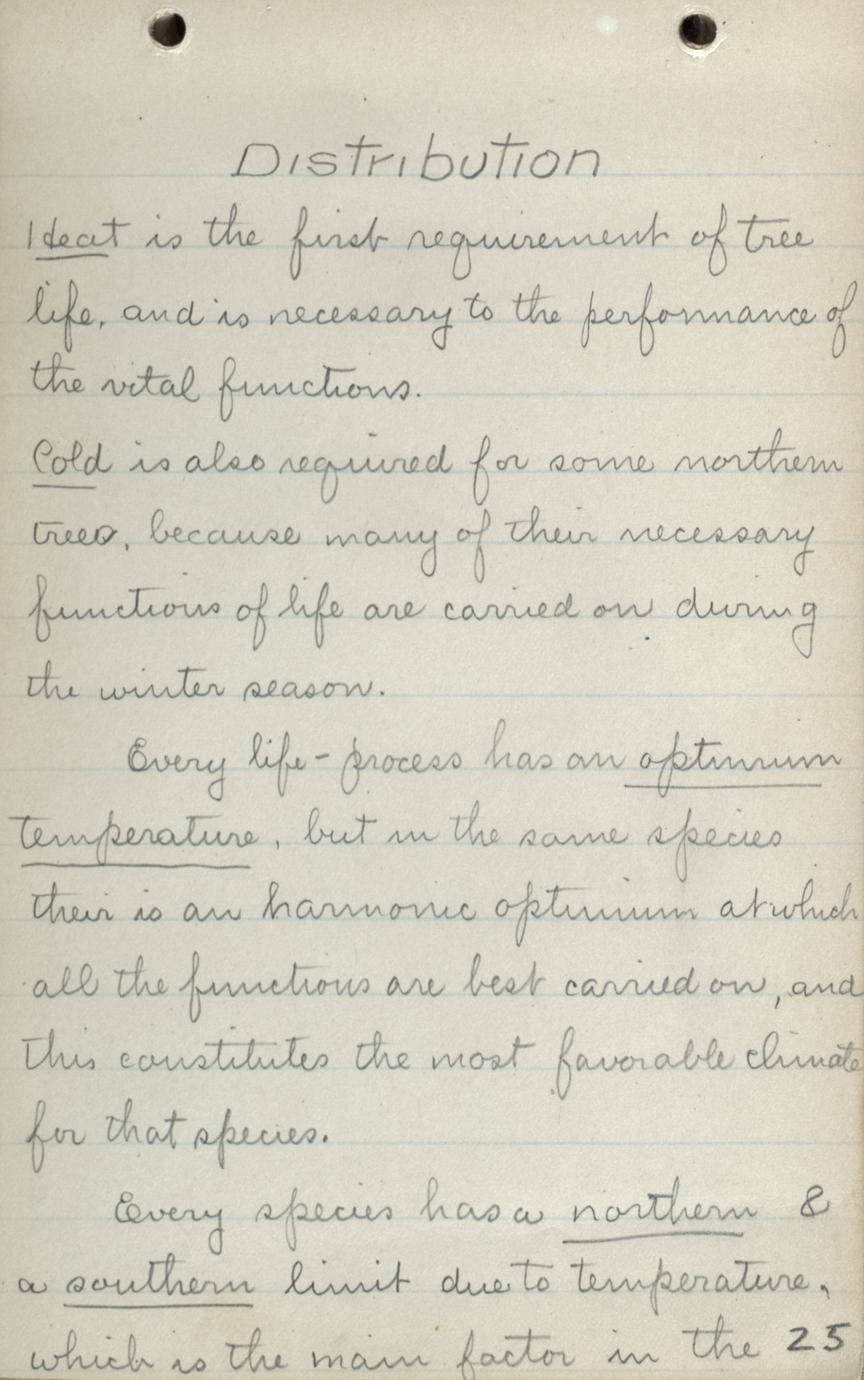 Distribution
Heat is the first requirement of tree
life, and is necessary to the performance of
the vital functions.
Cold is also required for some northern
trees, because many of their necessary
functions of life are carried on during
the winter season.
Every life-process has an optimum
temperature, but in the same species
their is an harmonic optimum at which
all the functions are best carried on, and
this constitutes the most favorable climate
for that species.
Every species has a northern &
a southern limit due to temperature,
which is the main factor in the 25